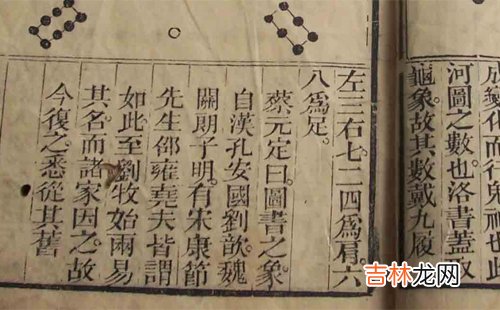 成變化而行鬼神也此
河圖之數也洛書蓋取
龜象故其數戴九履
左三右七二四爲肩六
八爲足
蔡元定曰圖書之象
自漢孔安國劉歆魏
關朗子明有宋康節
先生邵雍堯夫皆謂
如此至劉牧始兩易
其名而諸家因之故
今復之悉從其舊
吉林龙网
www.jllwzx.com